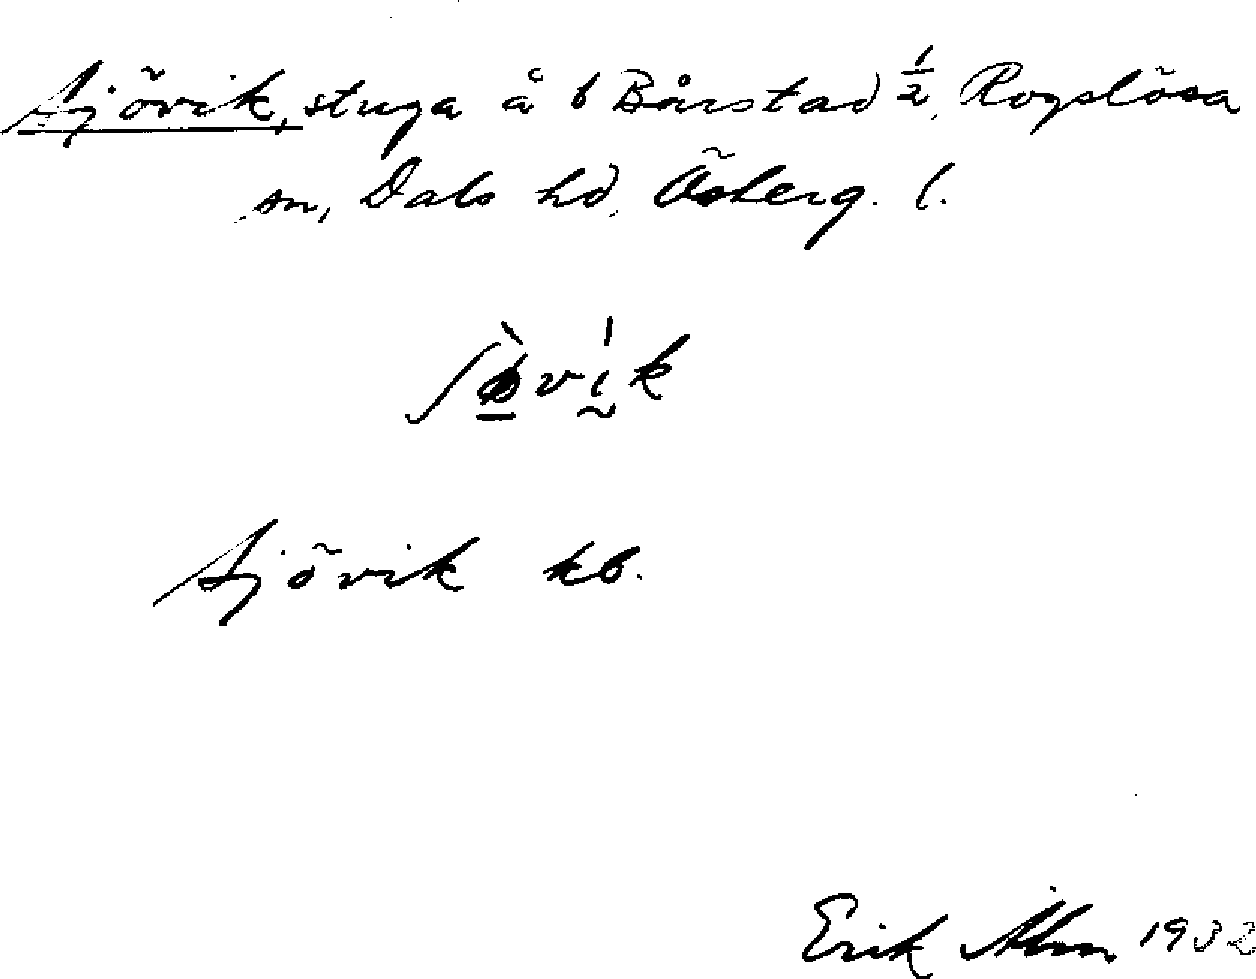 Sjövik, stuga å 6 Bårstad 1/2, Rogslösa
sn, Dals hd, Österg. l.
ʃø̀vík
Sjövik kb.
Erik Alm 1932